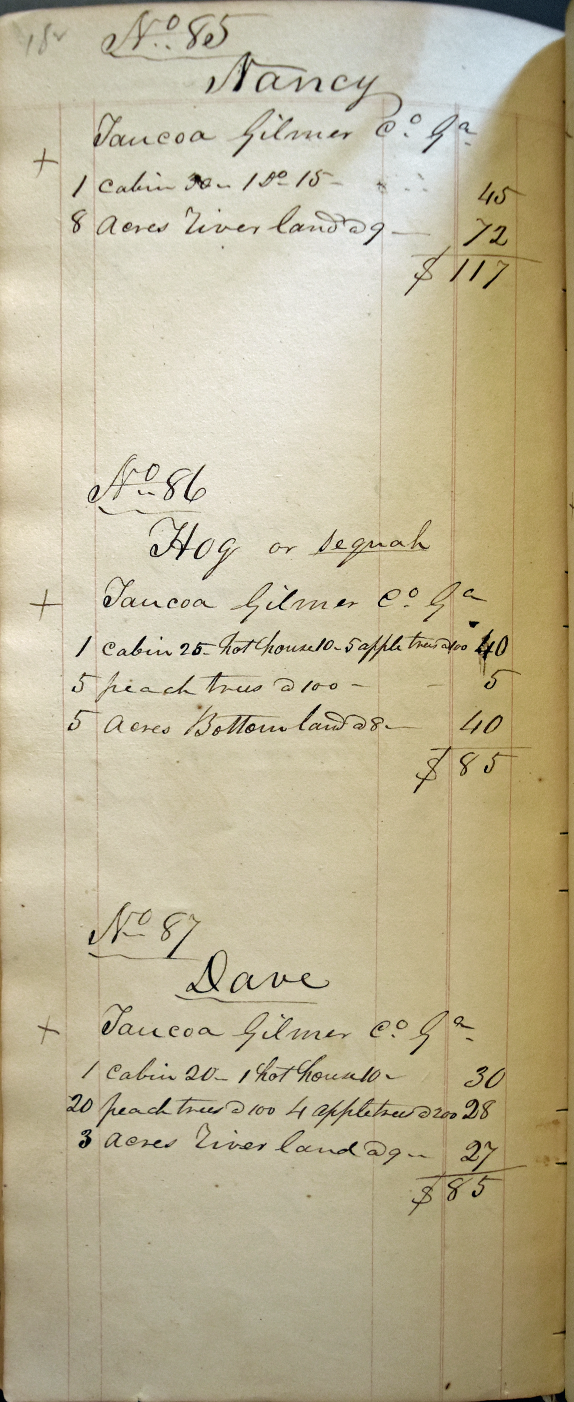 No 85
Nancy
Taucoa Gilmer Co Ga
1 cabin 30 - 1 Do 15 - 45
8 Acres River land @ 9 - 72
$ 117
No 86
Hog or sequah
Taucoa Gilmer Co Ga
1 cabin 25 - hot house 10 - 5 apple trees @ 100 40
5 peach trees @ 100 - - 5
5 Acres Bottom land @ 8 - 40
$ 85
No 87
Dave
Taucoa Gilmer Co Ga
1 cabin 20 - 1 hot house 10 - 30
20 peach trees @ 100 4 apple trees @ 200 28
3 acres River land @ 9 - 27
$ 85